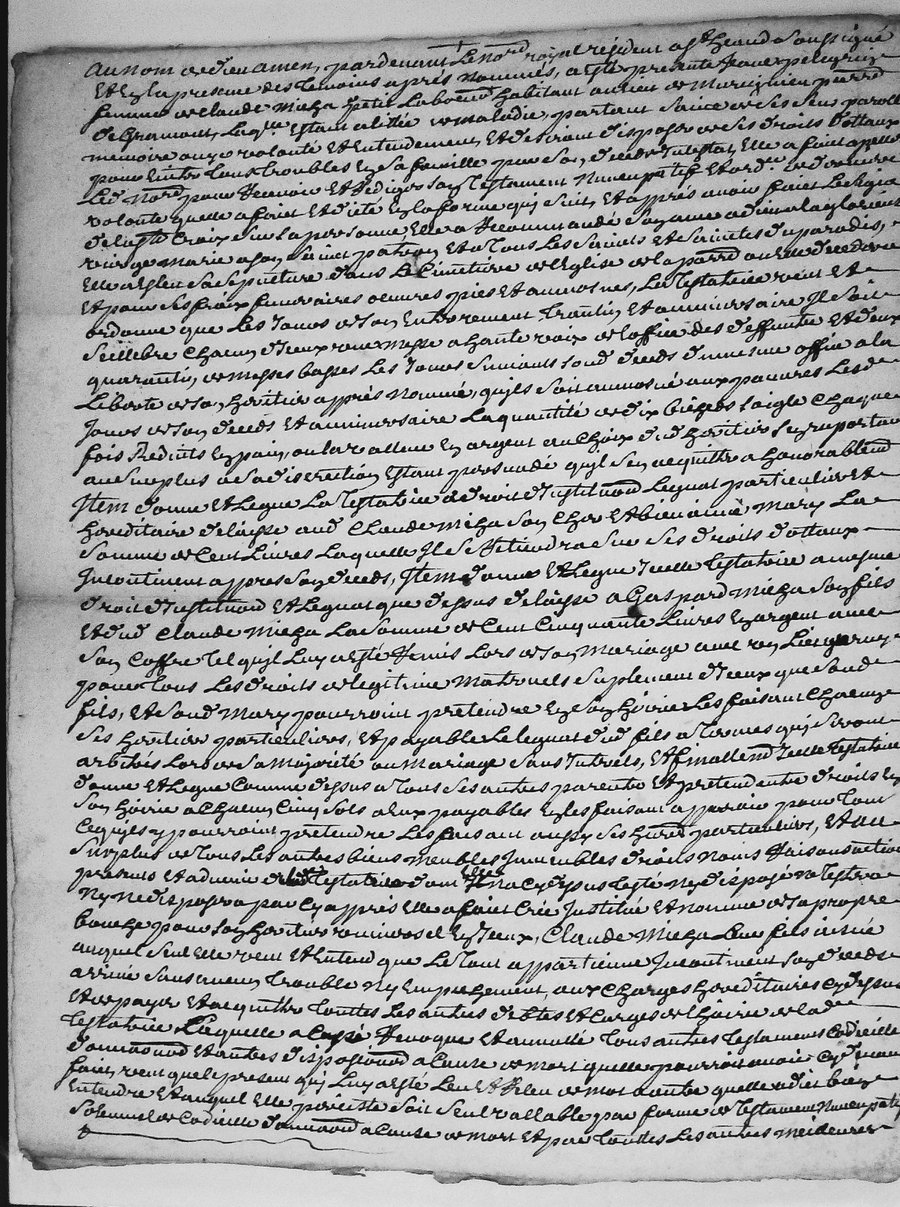 Au nom de dieu amen, pardevant le No.rd royal résident a St heand soussigné
Et En la presence des temoins après nommés, a esté presente Jeanne pelegrin
femme de claude Micha petit Laboureur habitant au lieu de
de Gramont, Laq.le Estant alitée de maladie, partant saine de ses sens parolle
memoire aux volonté et Entendement, Et desirant disposer de ses droits dottaux
pour Eviter tous troubles En sa famille par son deceds intestat, Elle a fait appeller
Led Nord pour Recevoir Et Rediger son testament Nuncupatif Et derniere
volonté quelle a fait Et dicté En la forme quy suit, Et apprés avoir fait le signe
de la Ste Croix sur sa personne Elle a Recommandé son ame a dieu a la glorieuse
vierge Marie a son saint patron Et a tous les saints Et saintes du paradis,
Elle a Esleu sa sepulture dans le Cimetiere de l'Eglise de la parr.
Et pour ses fraix funeraires oeuvres pies Et aumosnes, La testatrice veut Et
ordonne que les Jours de son Enterrement trantin, Et anniversaire Il soit
Cellebré chacun d'Jceux une messe a haute voix de l'office des deffunts Et d'une
quarantin, de messes basses les Jours suivants soud. deceds d'un mesme office a la
Liberté de son heritier après nommé, quils soit aumosné aux pauvres Lesd
Jours de son deceds Et anniversaire La quantité de dix bichets soigle chaque
fois Reduits En pain, ou la valleur En argent au choix dud heritier s'en reportant
au surplus a sa discretion Estant persuadé quyl s'en acquittra honorablement
Jtem donne Et Legue La testatrice a droit d'institution Legat particulier Et
hereditaire delaisse aud Claude Micha son cher Et bien aimé Mary La
Somme de Cent Livres Laquelle Il se Retiendra sur ses droits dottaux
Incontinent apprès son deceds, Jtem donne Et Legue Icelle testatrice a mesme
droit d'institution Et Legat que dessus delaisse a Gaspard Micha son fils
Et dud Claude Micha La somme de Cent Cinquante Livres En argent avec
son Coffre tel quyl Luy a Esté Remis Lors de son Mariage avec son Linge
pour tous les droits de legitime Maternels suplement d'iceux que soud
fils, Et soud Mary pourroint pretendre En son hoirie Les faisant chacun
ses heritiers particuliers, Et payable Le legat dud fils a termes quy seront
arbitrés Lors de sa majorité ou mariage sans Interets, Et finallement Icelle testatrice
donne Et Legue Comme dessus a tous ses autres parents Et pretendents droits En
son hoirie a Chacun Cinq sols a Eux payables En les faisant apparoir pour tout
Ce quils y pourroint pretendre Les faisant aussy ses heritiers particuliers, Et au
surplus de tous Les autres biens meubles Immeubles droits noms Raisons actions
presents Et advenir de lad testatrice dont Elle n'a Cy dessus testé Ny disposé ne testera
Ny ne disposera par Cy apprès Elle a fait Crée Institué Et nomme de sa propre
bouche pour son heritier universel En Iceux, Claude Micha Leur fils aisné
auquel seul Elle veut Et Entend que le tout appartienne Incontinent son deceds
arrivé sans aucun trouble Ny Empechement, aux charges hereditaires Cy dessus
Et de payer Et acquitter toutes Les autres debtes Et Charges de l'hoirie de lad
testatrice Laquelle a Cassé Revoqué Et annullé tous autres testaments Codicille
donnations Et autres dispositions a Cause de mort quelle pourroit avoir Cy devant
fait, veut que le present quy Luy a Esté Leu Et Releu de mot a autre quelle a dit bien
Entendre Et auquel Elle persiste soit seul vallable par forme de testament Nuncupatif
solemnel de Codicille donnation a Cause de mort Et par toutes Les autres meilleures